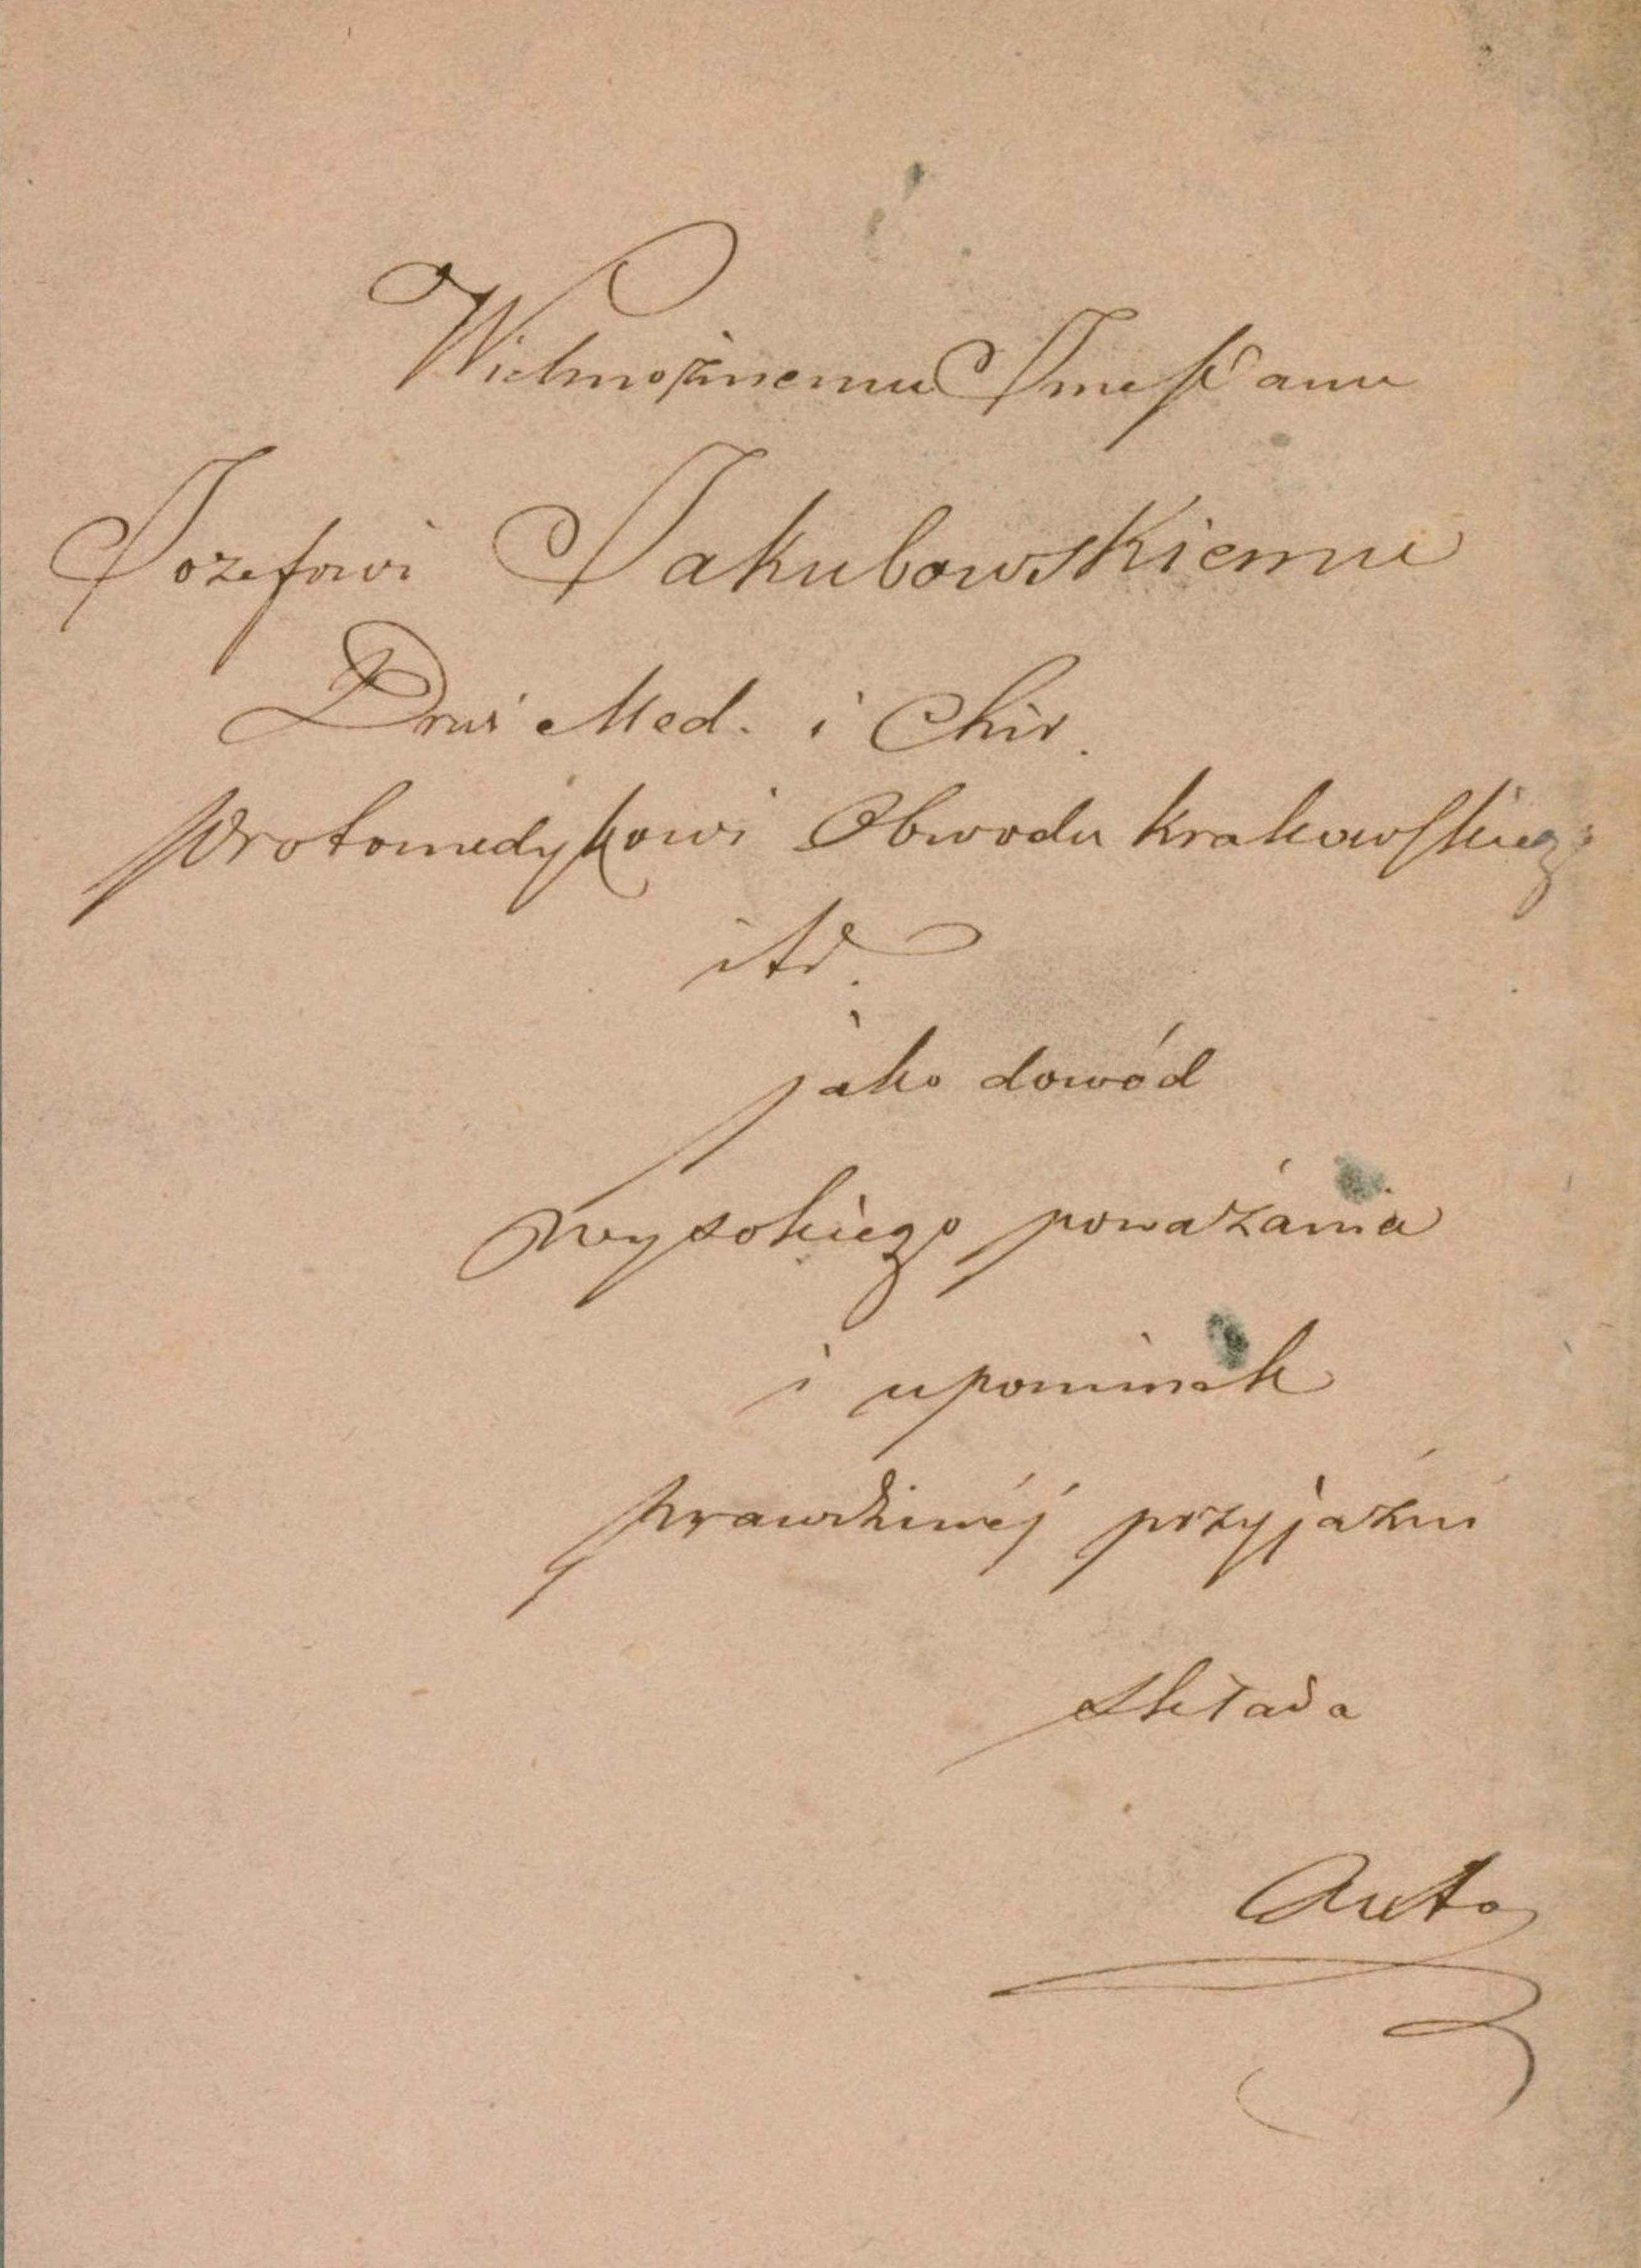 Wielmożnemu Jmć Panu
Jozefowi Jakubowskiemu
Drwi Med. i Chir.
Protomedykowi Obwodu Krakowskieg
itd.
jako dowód
wysokiego poważania
i upominek
prawdziwéj przyjaźni
składa
Auto